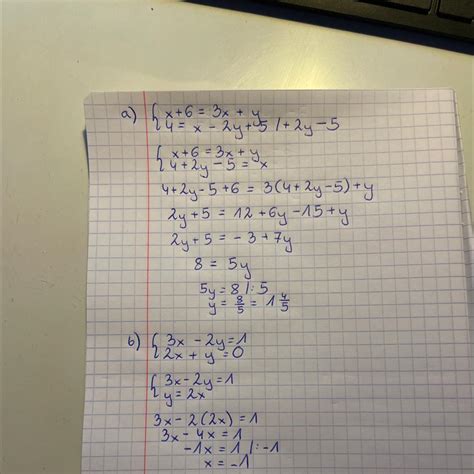 a) { x+6 = 3x + y
{ 4 = x - 2y + 5 / +2y - 5
{ x+6 = 3x + y
{ 4+2y - 5 = x
4+2y-5+6 = 3(4+2y-5)+y
2y+5 = 12+6y-15+y
2y+5 = -3+7y
8 = 5y
5y = 8 /:5
y = 8/5 = 1 4/5
b) { 3x - 2y = 1
{ 2x + y = 0
{ 3x - 2y = 1
{ y = 2x
3x - 2(2x) = 1
3x - 4x = 1
-1x = 1 /:-1
x = -1